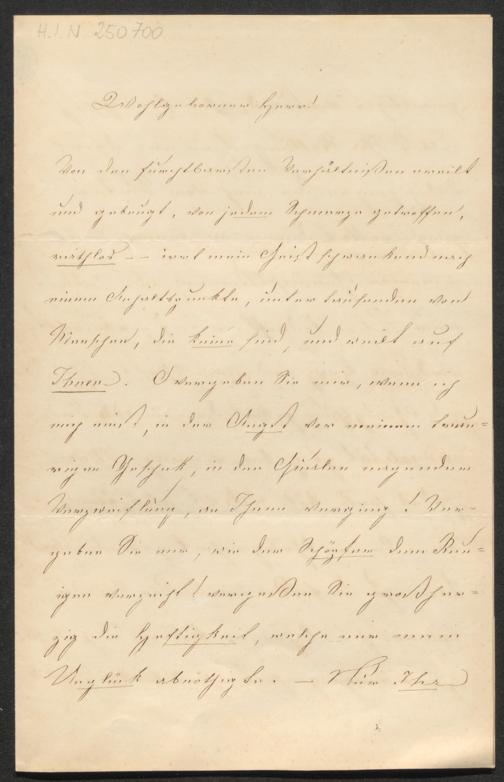 H.I.N. 250700
Wohlgeborner Herr!
Von den furchtbarsten Verhältnißen ereilt
und gebeugt, von jedem Schmerze getroffen,
rathlos —— irrt mein Geist schwankend nach
einem Anhaltspunkte, unter tausenden von
Menschen, die keine sind, und weilt auf
Ihnen. O vergeben Sie mir, wenn ich
mich einst, in der Angst vor meinem trau=
rigen Geschick, in den Qualen nagender
Verzweiflung, an Ihnen verging! Ver-
geben Sie mir, wie der Schöpfer dem Reu-
igen verzeiht! vergeßen Sie großher=
zig die Heftigkeit, welche mir mein
Unglück abnöthigte. — Nur Ihr